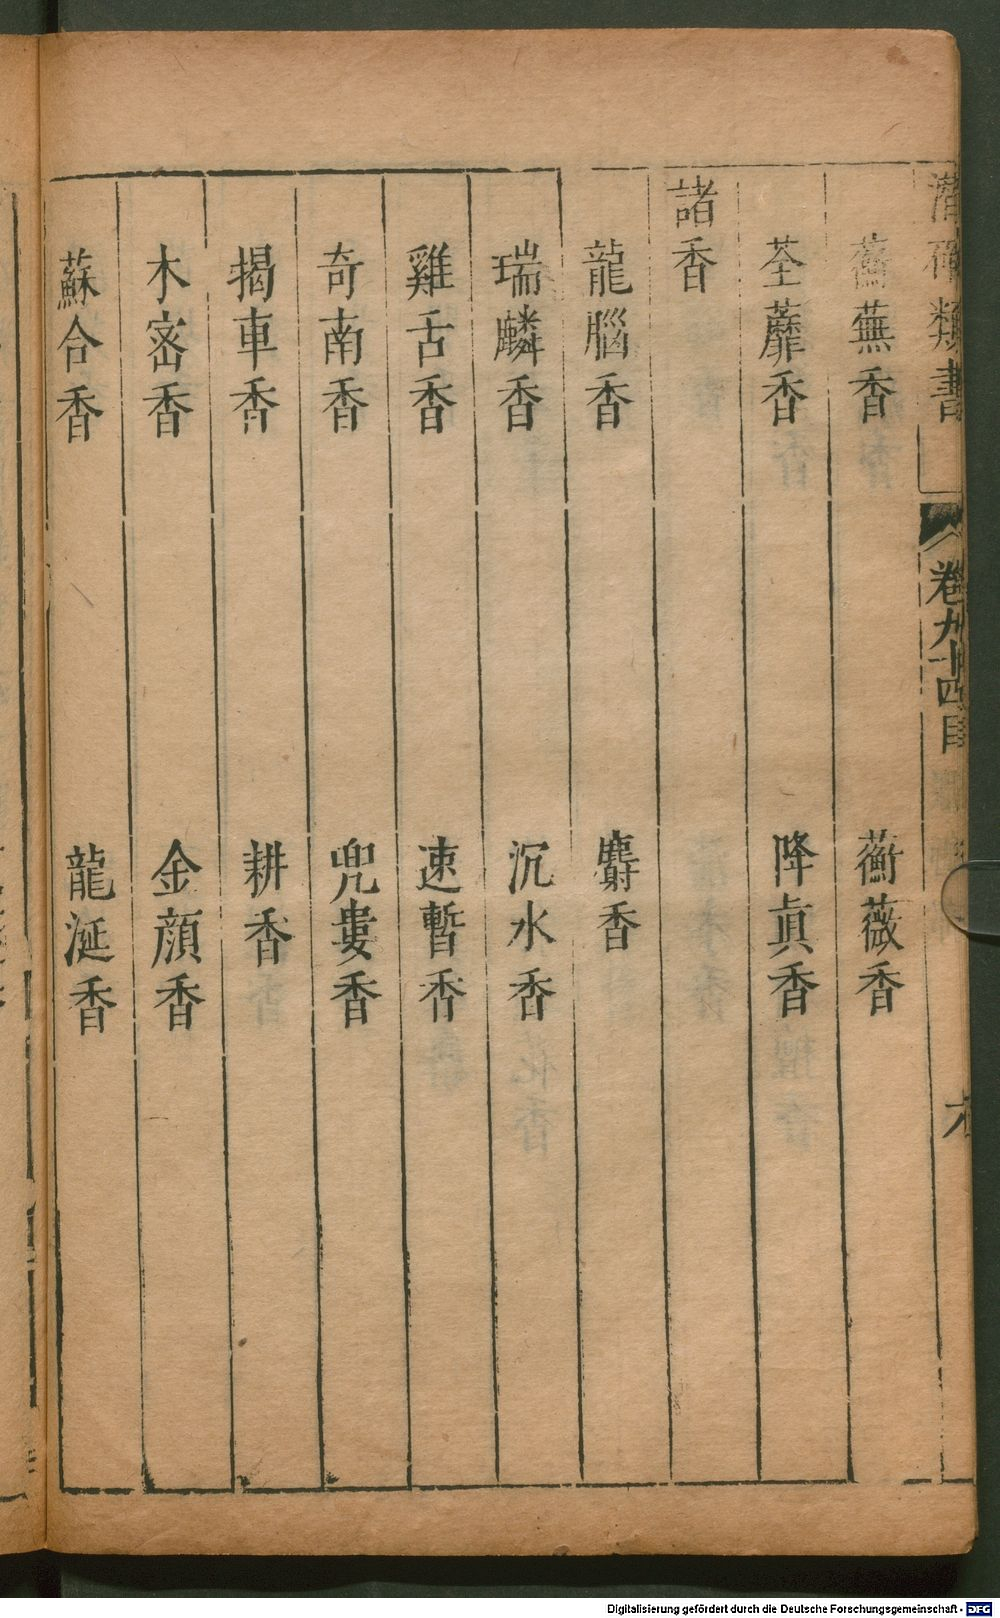 潛確類書
卷九十四目
六
舊蕪香
蘅薇香
荃蘼香
降眞香
諸香
龍腦香
麝香
瑞麟香
沉水香
雞舌香
速暫香
奇南香
兜婁香
揭車香
耕香
木宻香
金顔香
蘇合香
龍涎香
Digitalisierung gefördert durch die Deutsche Forschungsgemeinschaft - DFG